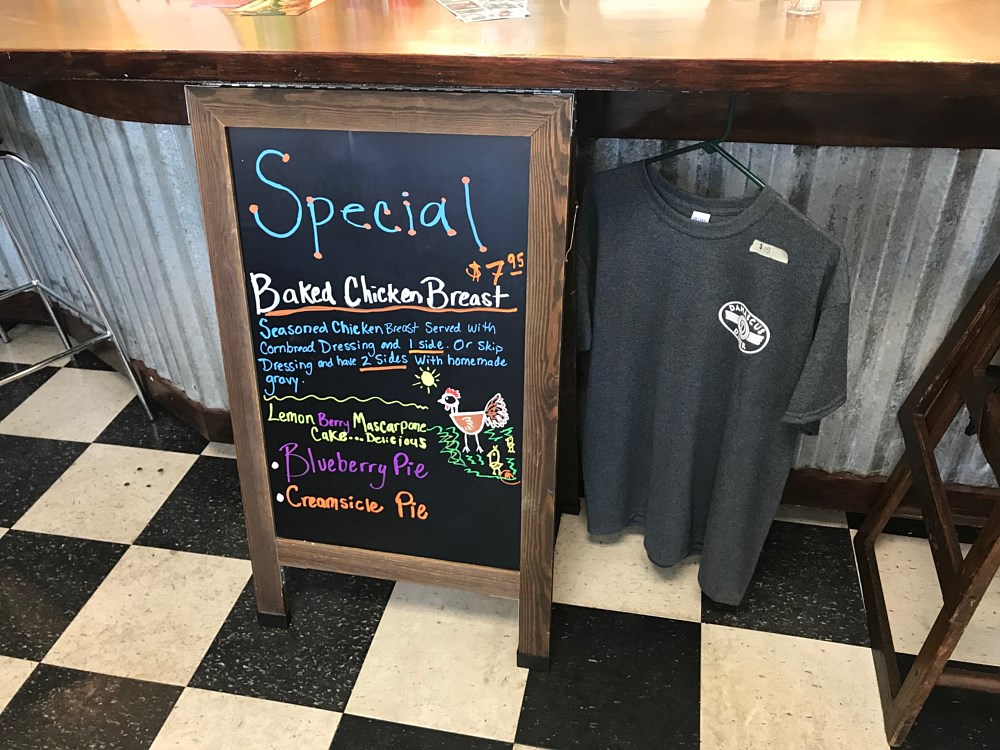 Special
$7.95
Baked Chicken Breast
Seasoned Chicken Breast Served with
Cornbread Dressing and 1 side. Or Skip
Dressing and have 2 sides with homemade
gravy.
Lemon Berry Mascarpone
Cake...Delicious
Blueberry Pie
Creamsicle Pie
DAMASCUS